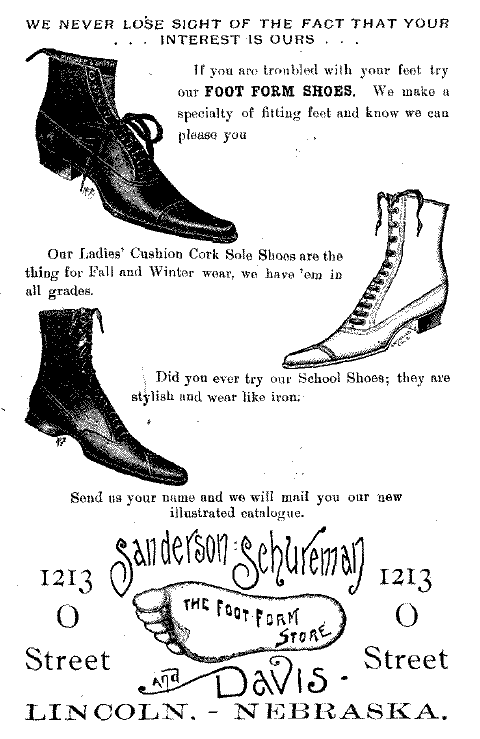 WE NEVER LOSE SIGHT OF THE FACT THAT YOUR
. . . INTEREST IS OURS . . .
If you are troubled with your feet try
our FOOT FORM SHOES. We make a
specialty of fitting feet and know we can
please you
Our Ladies' Cushion Cork Sole Shoes are the
thing for Fall and Winter wear, we have 'em in
all grades.
Did you ever try our School Shoes; they are
stylish and wear like iron.
Send us your name and we will mail you our new
illustrated catalogue.
Sanderson: Schureman
1213
O
Street
THE FOOT FORM
STORE
1213
O
Street
AND
DAVIS.
LINCOLN. - NEBRASKA.